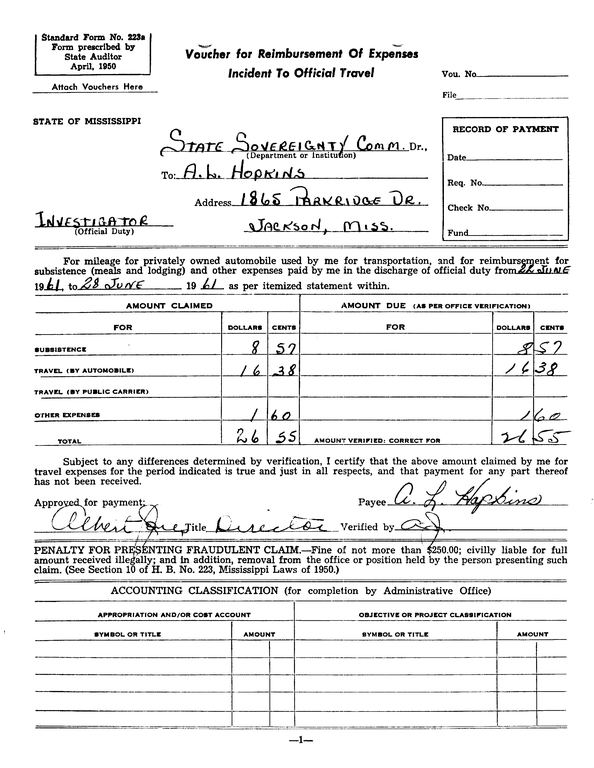 Standard Form No. 223a
Form prescribed by
State Auditor
April, 1950
Attach Vouchers Here
Voucher for Reimbursement Of Expenses
Incident To Official Travel
Vou. No.
File
STATE OF MISSISSIPPI
STATE SOVEREIGNTY COMM. Dr.,
(Department or Institution)
To: A.L. HOPKINS
Address 1865 PARKRIDGE DR.
INVESTIGATOR
(Official Duty)
JACKSON, MISS.
RECORD OF PAYMENT
Date
Req. No.
Check No.
Fund
For mileage for privately owned automobile used by me for transportation, and for reimbursement for
subsistence (meals and lodging) and other expenses paid by me in the discharge of official duty from JUNE
1961, to 28 JUNE 1961 as per itemized statement within.
AMOUNT CLAIMED AMOUNT DUE (AS PER OFFICE VERIFICATION)
FOR DOLLARS CENTS FOR DOLLARS CENTS
SUBSISTENCE 8 57 8 57
TRAVEL (BY AUTOMOBILE) 16 38 16 38
TRAVEL (BY PUBLIC CARRIER)
OTHER EXPENSES 1 60 1 60
TOTAL 26 55 AMOUNT VERIFIED: CORRECT FOR 26 55
Subject to any differences determined by verification, I certify that the above amount claimed by me for
travel expenses for the period indicated is true and just in all respects, and that payment for any part thereof
has not been received.
Approved for payment: Payee A. L. Hopkins
Albert Title Director Verified by
PENALTY FOR PRESENTING FRAUDULENT CLAIM.—Fine of not more than $250.00; civilly liable for full
amount received illegally; and in addition, removal from the office or position held by the person presenting such
claim. (See Section 10 of H. B. No. 223, Mississippi Laws of 1950.)
ACCOUNTING CLASSIFICATION (for completion by Administrative Office)
APPROPRIATION AND/OR COST ACCOUNT OBJECTIVE OR PROJECT CLASSIFICATION
SYMBOL OR TITLE AMOUNT SYMBOL OR TITLE AMOUNT
—1—